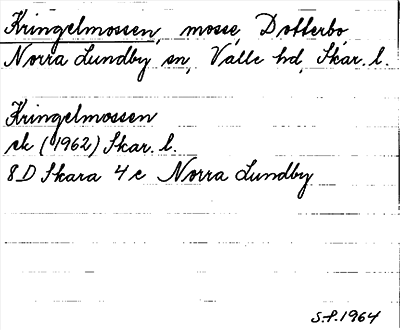 Kringelmossen, mosse, Dotterbo,
Norra Lundby sn, Valle hd, Skar. l.
Kringelmossen
ek (1962) Skar. l.
8D Skara 4 c Norra Lundby
S.F. 1964